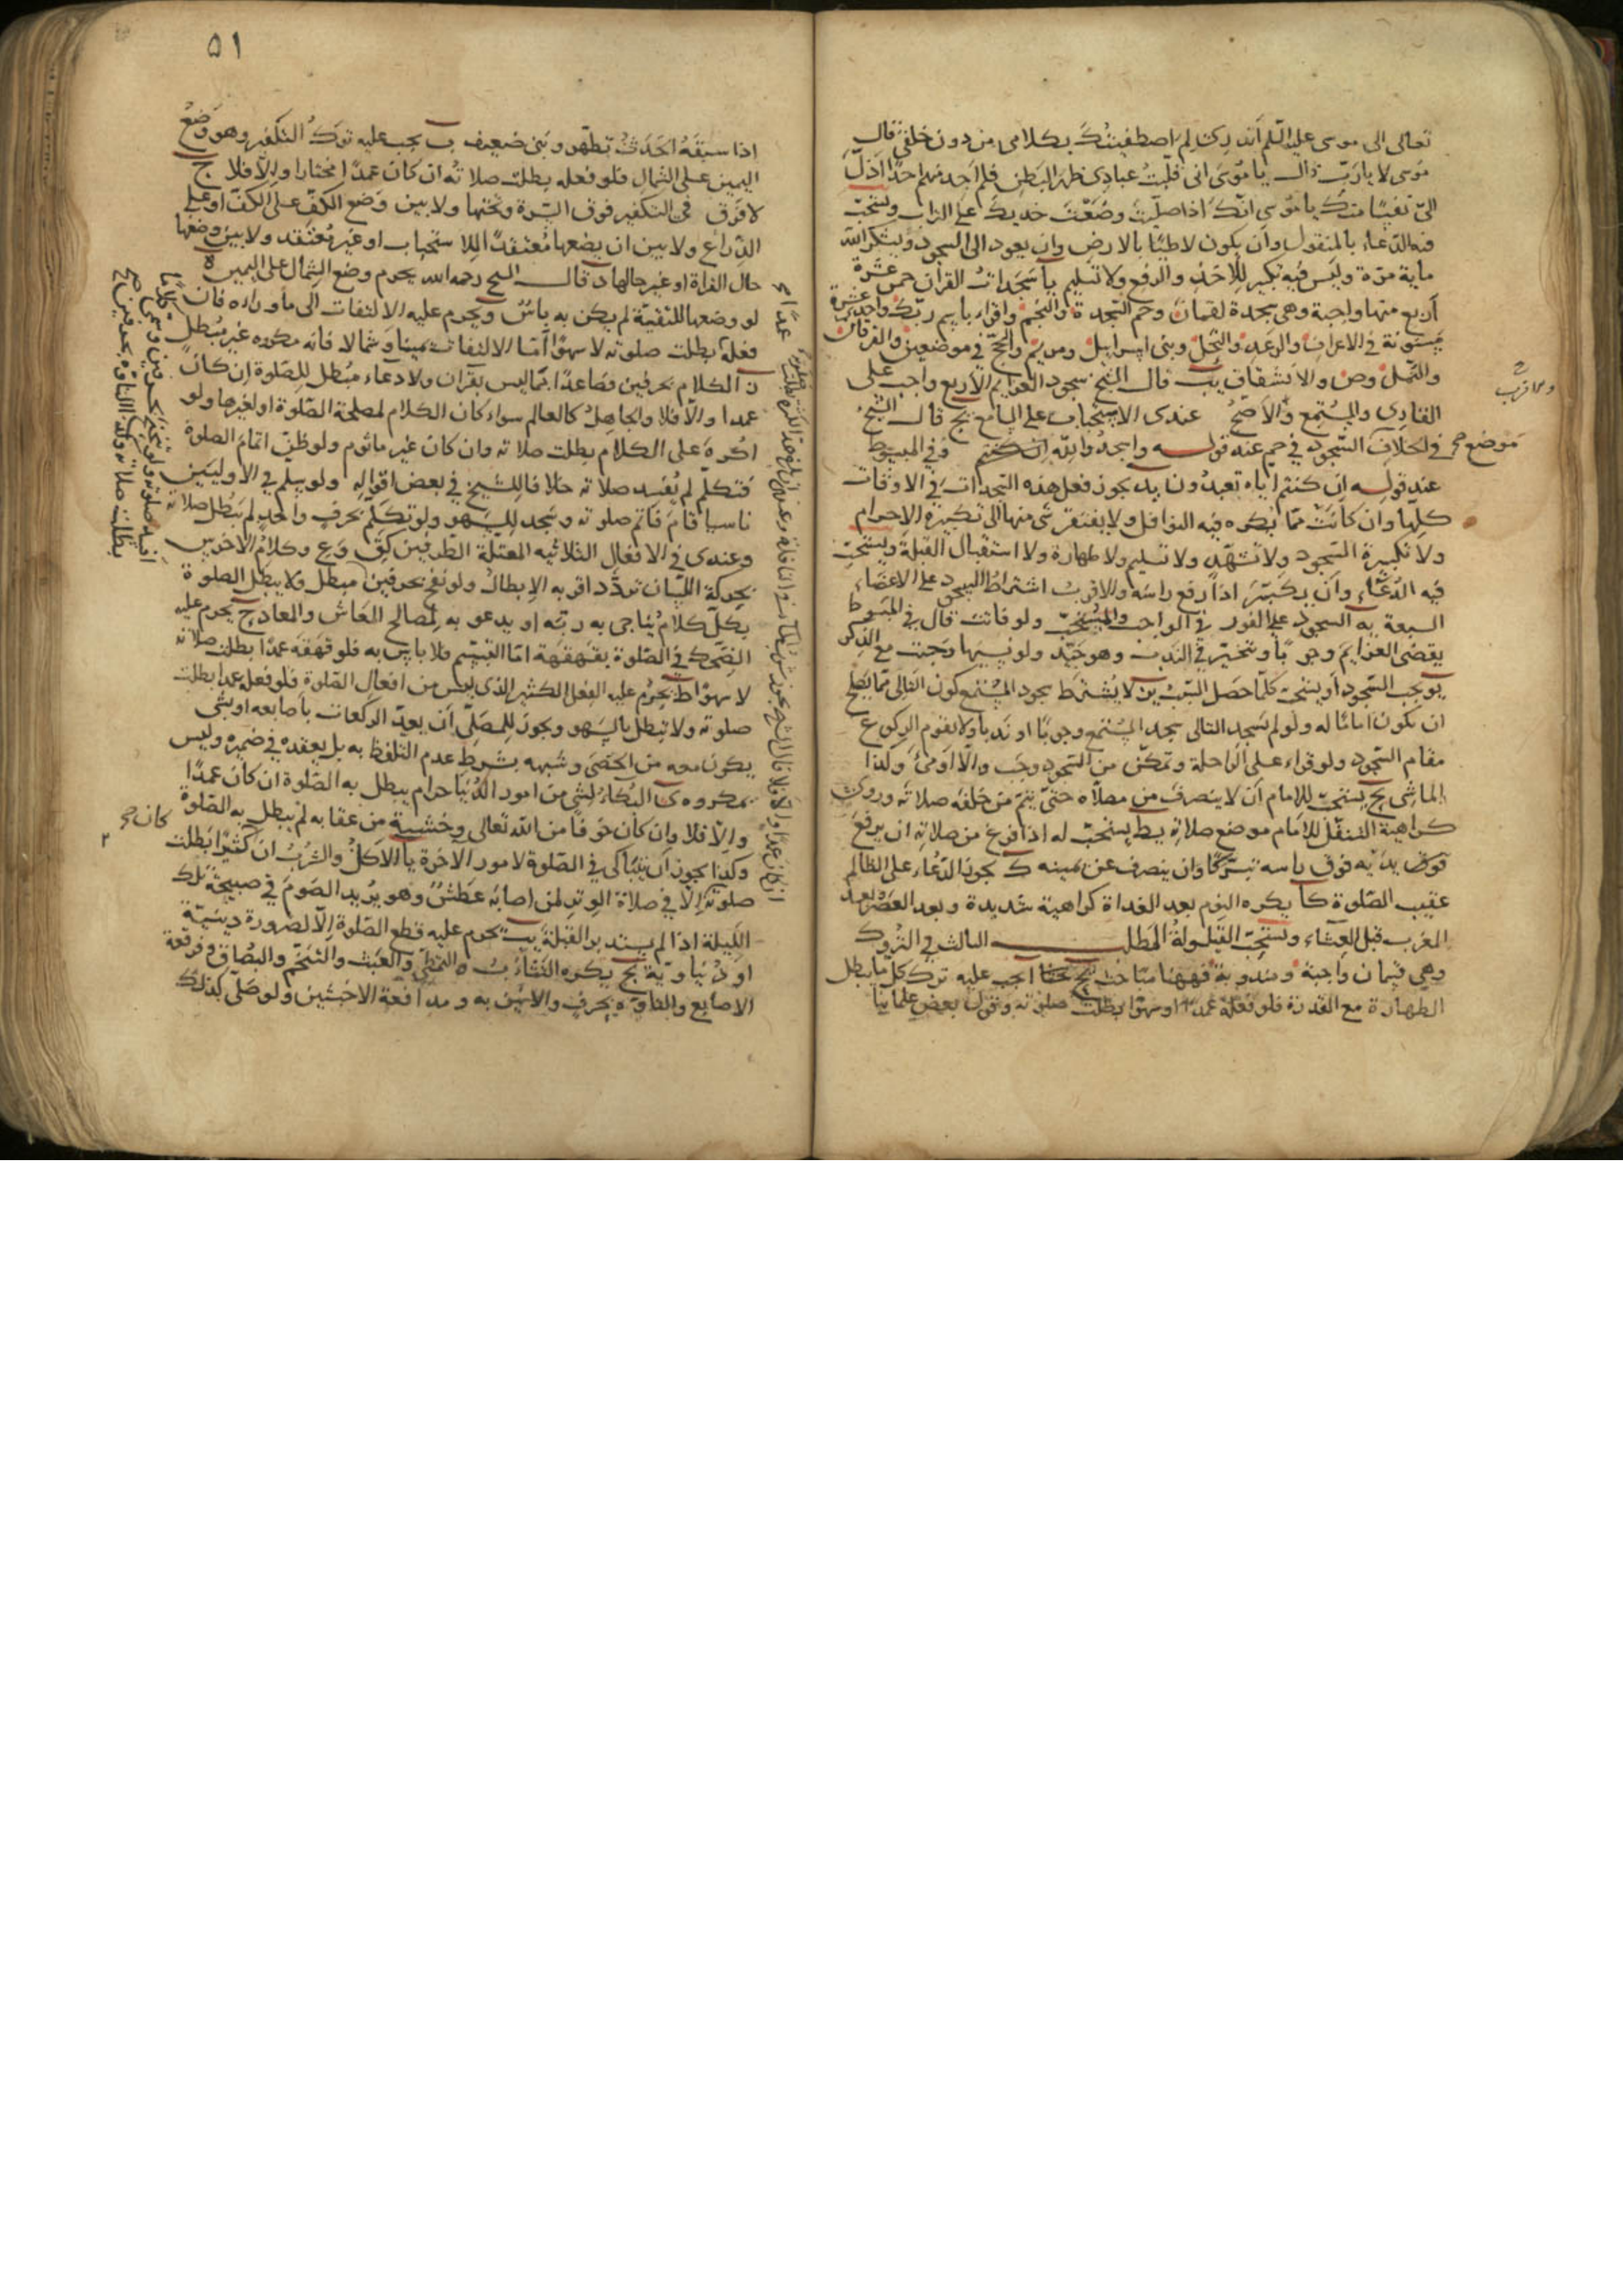 تعالى الى موسى عليه السلم اتدرى لم اصطفيتك بكلامى من دون خلقى قال
موسى لا يا رب قال يا موسى انى قلبت عبادى ظهر البطن فلم اجد منهم احدا اذل
الى نفسا منك يا موسى انك اذا صليت وضعت خديك على التراب ويستحب
فيه الدعاء بالمنقول وان يكون لاطئا بالارض وان يعود الى السجود ويشكر الله
ماية مرة وليس فيه تكبير للاخذ والرفع ولا تسليم يا سجدات القرآن خمس عشرة
أربع منها واجبة وهى سجدة لقمان وحم السجدة والنجم واقراء باسم ربك واحدى عشرة
مسنونة فى الاعراف والرعد والنحل وبنى اسرايل ومريم والحج فى موضعين والفرقان
والنمل وص والانشقاق يب قال الشيخ سجود العزايم الاربع واجب على
القارى والمستمع والاصح عندى الاستحباب على السامع يج قال الشيخ
موضع
فى الخلاف السجود فى حم عند قوله واسجدوا لله ان كنتم وفى المبسوط
عند قوله ان كنتم اياه تعبدون يد يجوز فعل هذه السجدات فى الاوقات
كلها وان كانت مما يكره فيه النوافل ولا يفتقر شى منها الى تكبيرة الاحرام
ولا تكبيرة السجود ولا تشهد ولا تسليم ولا طهارة ولا استقبال القبلة ويستحب
فيه الدعاء وان يكبر اذا رفع راسه والاقرب اشتراط السجود على الاعضاء
السبعة يه السجود على الفور فى الواجب والمستحب ولو فاتت قال فى المبسوط
يقضى العزايم وجوبا ويتخير فى الندب وهو جيد ولو نسيها وجبت مع الذكر
يو يجب السجود او يستحب كلما حصل السبب يز لا يشترط سجود المستمع كون التالى مما يصلح
ان يكون اماما له ولو لم يسجد التالى سجد المستمع وجوبا او ندبا ولا يقوم الركوع
مقام السجود ولو قراء على الراحلة وتمكن من السجود وجب والا اومئ وكذا
الماشى يح يستحب للامام ان لا ينصرف من مصلاه حتى يتم من خلفه صلاته وروى
كراهية التنفل للامام موضع صلاته يط يستحب له اذا فرغ من صلاته ان يرفع
فوق يديه فوق راسه تبركا وان ينصرف عن يمينه ك يجوز الدعاء على الظالم
عقيب الصلوة كا يكره النوم بعد الغداة كراهية شديدة وبعد العصر وبعد
المغرب قبل العشاء ويستحب القيلولة المطلب الثالث فى التروك
وهى قسمان واجبة ومندوبة فههنا مباحث ا يجب عليه ترك كل ما يبطل
الطهارة مع القدرة فلو فعله عمدا او سهوا بطلت صلوته وقول بعض علمائنا
٥١
اذا سبقه الحدث تطهر وبنى ضعيف ب يجب عليه ترك التكفير وهو وضع
اليمين على الشمال فلو فعله بطلت صلاته ان كان عمدا مختارا والا فلا ج
لا فرق فى التكفير فوق السرة وتحتها ولا بين وضع الكف على الكف او على
الذراع ولا بين ان يضعها معتقدا للاستحباب او غير معتقد ولا بين وضعها
حال القراة او غير حالها د قال الشيخ رحمه الله يحرم وضع الشمال على اليمين ه
لو وضعها للتقية لم يكن به باس و يحرم عليه الالتفات الى ما وراءه فان
فعله بطلت صلوته لا سهوا اما الالتفات يمينا وشمالا فانه مكروه غير مبطل
ز الكلام بحرفين فصاعدا بما ليس بقرآن ولا دعاء مبطل للصلوة ان كان
عمدا والا فلا والجاهل كالعالم سواء كان الكلام لمصلحة الصلوة او لغيرها ولو
اكره على الكلام بطلت صلاته وان كان غير ماثوم ولو ظن اتمام الصلوة
فتكلم لم تفسد صلاته خلافا للشيخ فى بعض اقواله ولو سلم فى الاوليين
ناسيا قام فاتم صلوته وسجد للسهو ولو تكلم بحرف واحد لم تبطل صلاته
وعندى فى الافعال الثلاثيه المعتلة الطرفين كق وع وكلام الاخرس
بحركة اللسان تردد اقربه الابطال ولو نفخ بحرفين مبطل ولا يبطل الصلوة
بكل كلام يناجى به ربه او يدعو به لمصالح المعاش والمعاد ح يحرم عليه
الضحك فى الصلوة بقهقهة اما التبسم فلا باس به فلو قهقه عمدا بطلت صلاته
لا سهوا ط يحرم عليه الفعل الكثير الذى ليس من افعال الصلوة فلو فعله عمدا بطلت
صلوته ولا تبطل بالسهو ويجوز للمصلى ان يعد الركعات باصابعه او بشى
يكون معه من الحصى وشبهه بشرط عدم التلفظ به بل يعقده فى ضميره وليس
بمكروه ى البكاء لشئ من امور الدنيا حرام يبطل به الصلوة ان كان عمدا
والا فلا وان كان خوفا من الله تعالى وخشية من عقابه لم يبطل به الصلوة
وكذا يجوز ان يتباكى فى الصلوة لامور الاخرة يا الاكل والشرب ان كثيرا بطلت
كان
صلوته الا فى صلاة الوتر لمن اصابه عطش وهو يريد الصوم فى صبيحة تلك
الليلة اذا لم يستدبر القبلة يب يحرم عليه قطع الصلوة الا لضرورة دينية
او دنياوية يج يكره التثاؤب والتمطى والعبث والتنخم والبصاق وفرقعة
الاصابع والتاوه بحرف والانين به ومدافعة الاخبثين ولو صلى كذلك